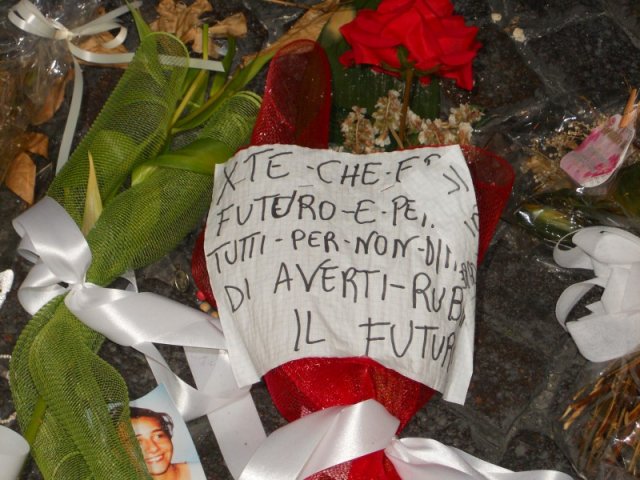 XTE-CHE-E'
FUTURO-E-PE
TUTTI-PER-NON-DI
DI AVERTI-RUB
IL FUTUR